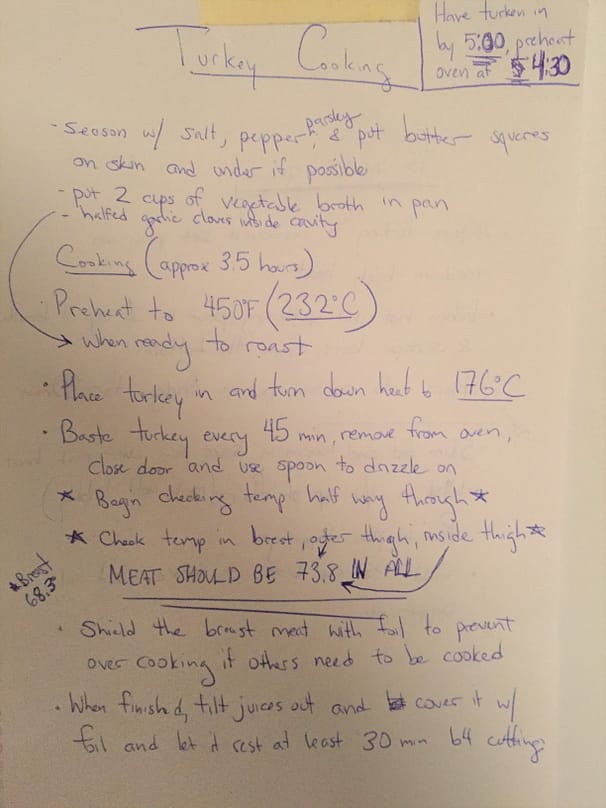 Turkey Cooking
Have turken in
by 5:00, preheat
oven at 4:30
- Season w/ salt, pepper, parsley & put butter squares
on skin and under if possible
- put 2 cups of vegetable broth in pan
- halfed garlic cloves inside cavity
Cooking (approx 3.5 hours)
· Preheat to 450°F (232°C)
→ when ready to roast
· Place turkey in and turn down heat to 176°C
· Baste turkey every 45 min, remove from oven,
close door and use spoon to drizzle on
* Begin checking temp half way through *
* Check temp in brest, outer thigh, inside thigh *
MEAT SHOULD BE 73.8 IN ALL
* Breast
68.3
· Shield the breast meat with foil to prevent
over cooking if others need to be cooked
· When finished, tilt juices out and cover it w/
foil and let it rest at least 30 min b4 cutting